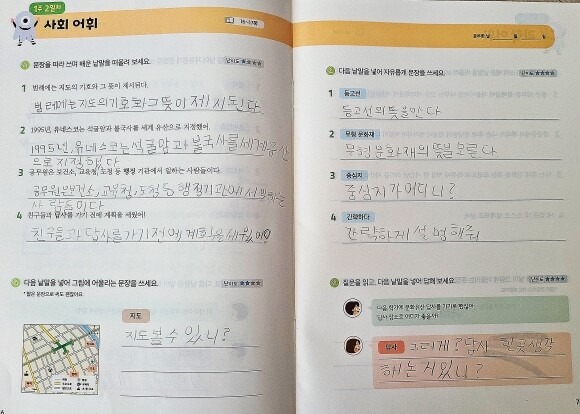 1주 2일차
사회 어휘
16~17쪽
문장을 따라 쓰며 배운 낱말을 떠올려 보세요.
난이도 ★★★★
1 범례에는 지도의 기호와 그 뜻이 제시된다.
범례에는지도의기호화그뜻이제시된다.
2 1995년, 유네스코는 석굴암과 불국사를 세계 유산으로 지정했어.
1995년,유네스코는석굴암과불국사를세계유산
으로지정했다
3 공무원은 보건소, 교육청, 도청 등 행정 기관에서 일하는 사람들이다.
4 친구들과 답사를 가기 전에 계획을 세웠어!
친구들과답사를가기전에계획을세웠어!
다음 낱말을 넣어 그림에 어울리는 문장을 쓰세요.
난이도 ★★★★
* 짧은 문장으로 써도 괜찮아요.
지도
지도볼수있니?
공부한 날 월 일
다음 낱말을 넣어 자유롭게 문장을 쓰세요.
난이도 ★★★★
1 등고선
등고선의뜻을안다
2 무형 문화재
무형문화재의뜻을모른다.
3 중심지
중심지가어디니?
4 간략하다
간략하게설명해줘
질문을 읽고, 다음 낱말을 넣어 답해 보세요.
난이도 ★★★★
답사 장소로 어디가 좋을까?
답사
그러게? 답사 할곳생각
해논거있니?